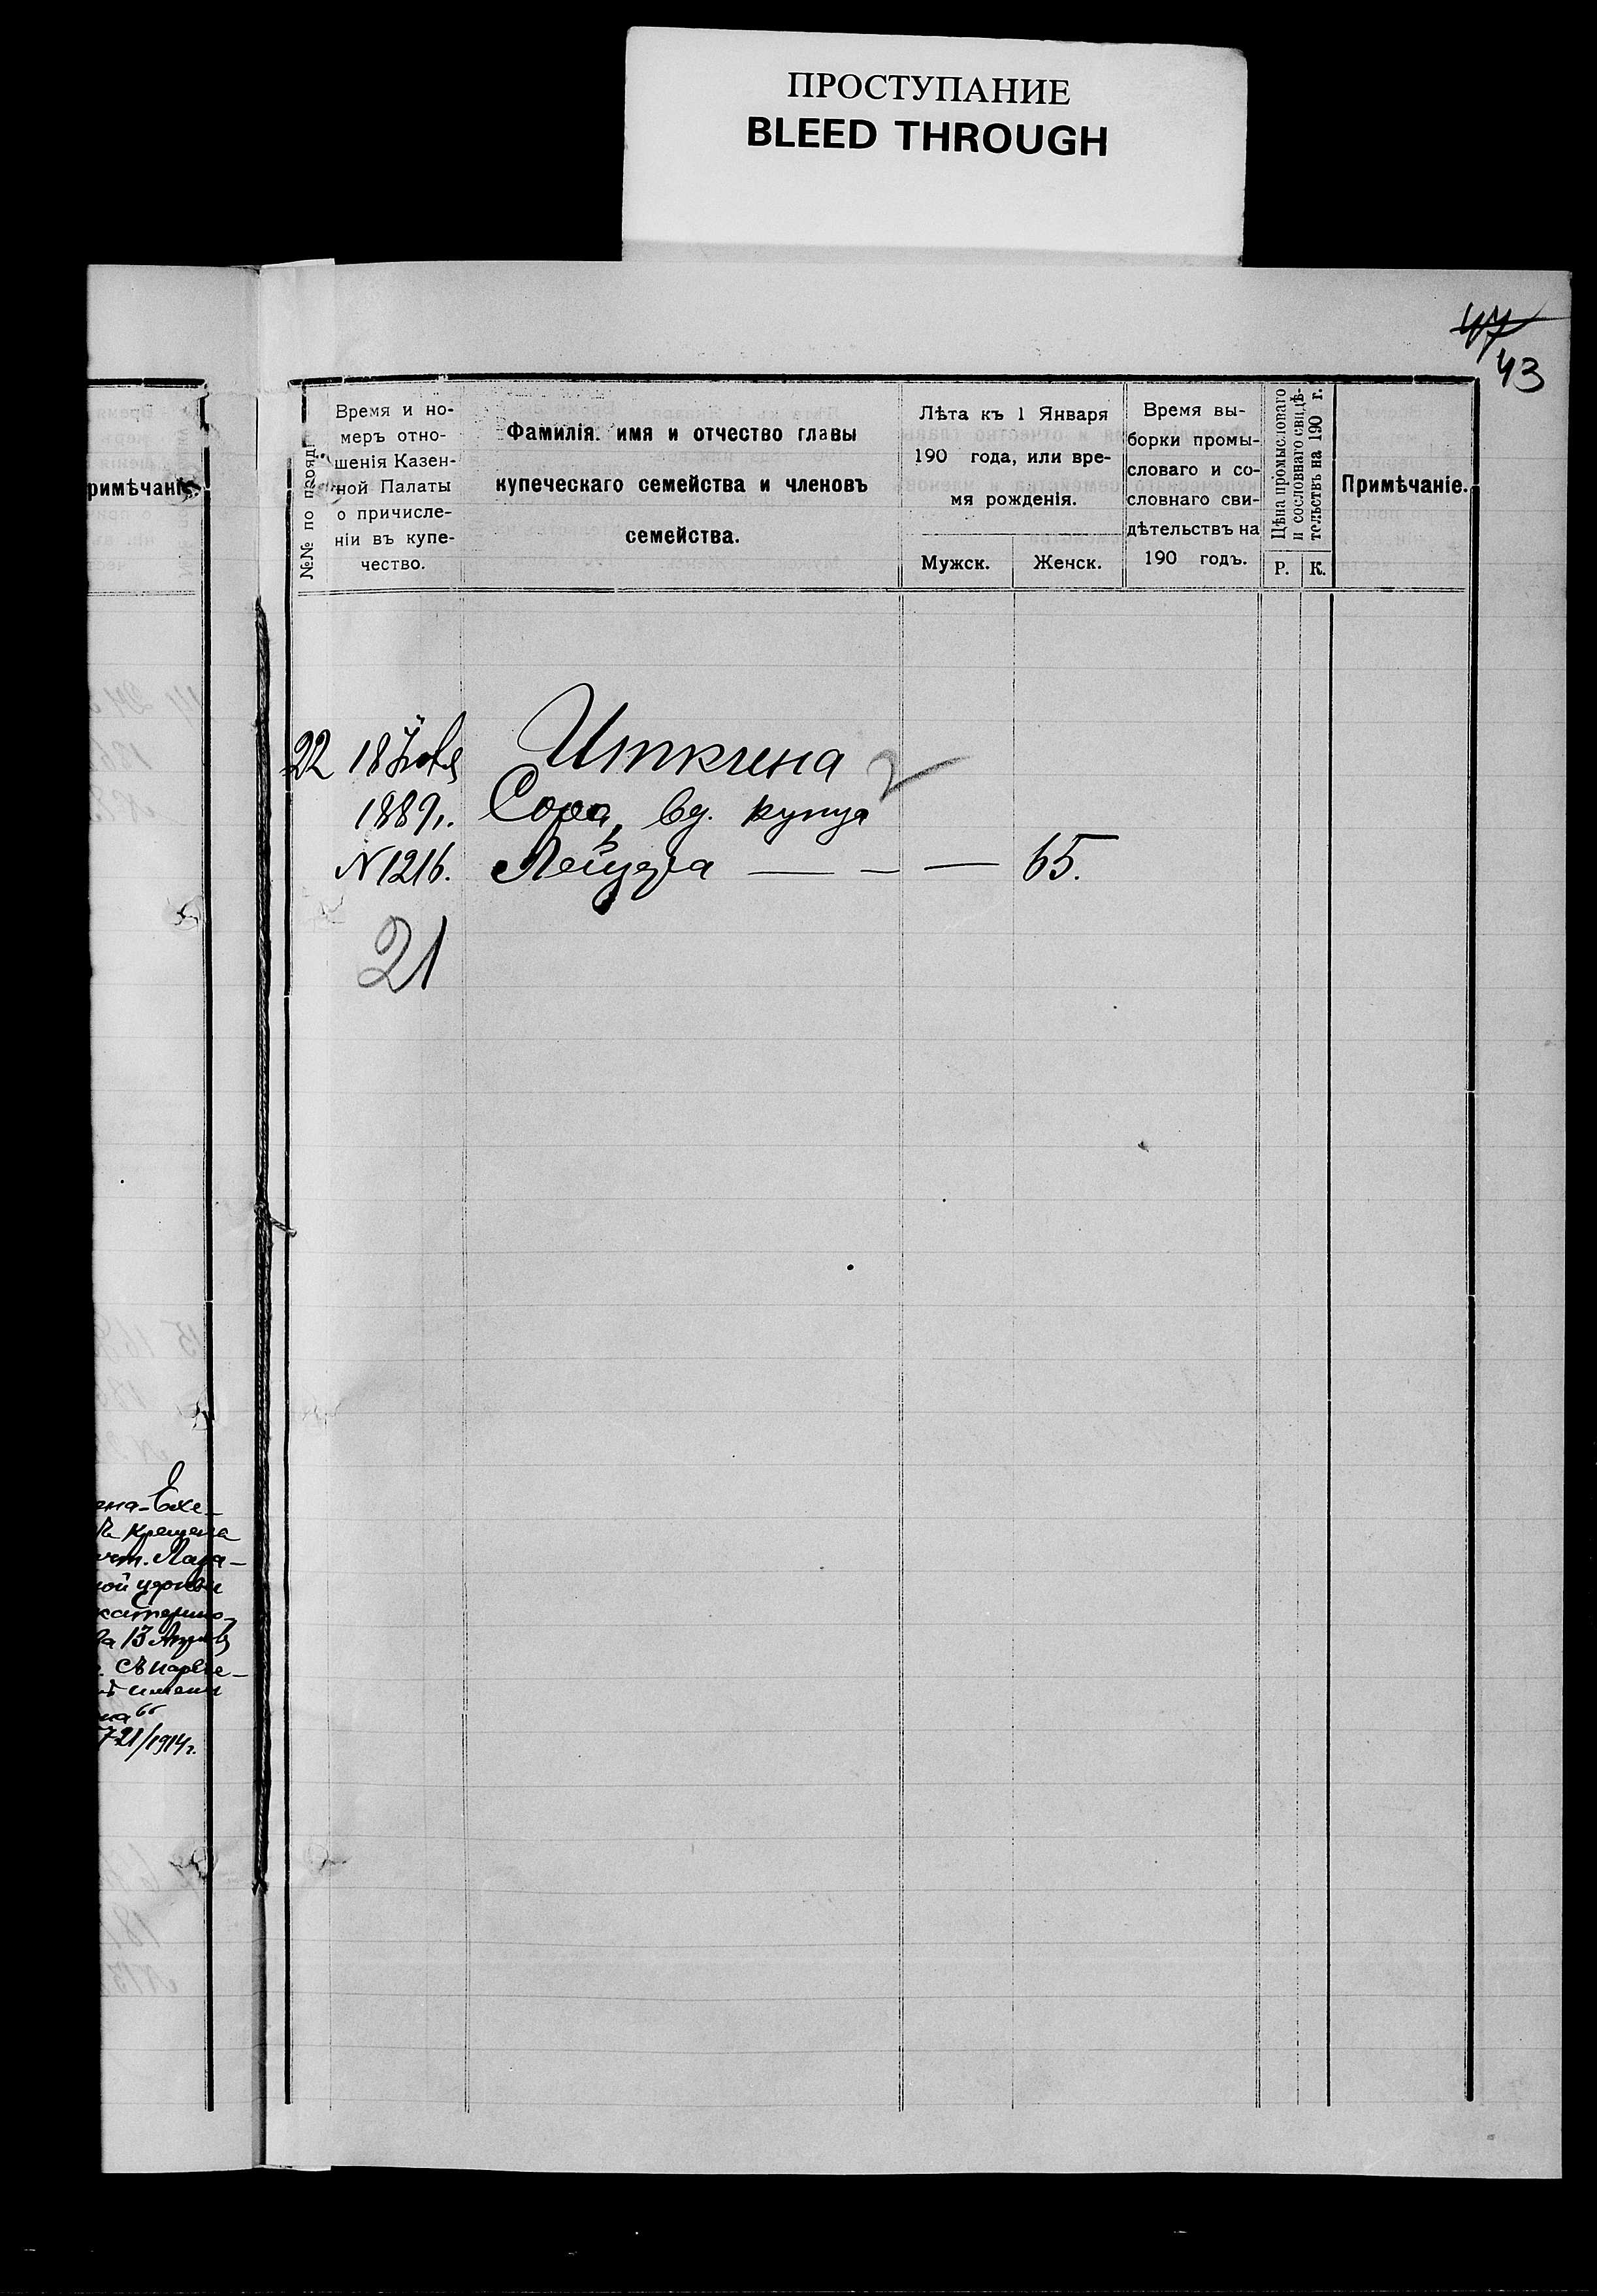 ПРОСТУПАНИЕ
BLEED THROUGH
47
43
римѣчаніе
№№ по поряд.
Время и но-
меръ отно-
шенія Казен-
ной Палаты
о причисле-
ніи въ купе-
чество.
Фамилія. имя и отчество главы
купеческаго семейства и членовъ
семейства.
Лѣта къ 1 Января
190 года, или вре-
мя рожденія.
Мужск.
Женск.
Время вы-
борки промы-
словаго и со-
словнаго сви-
дѣтельствъ на
190 годъ.
Цѣна промысловаго
и сословнаго свидѣ-
тельствъ на 190 г.
Р. К.
Примѣчаніе.
22 18 Ноя Иткина 2
1889г. Сора, вд. купца
N 1216. Лейзера — — — 65.
21
ена-Ехе-
крещена
Лаза-
ной церкви
катерино-
13 Апрѣля
имени
на"
721/1914г.